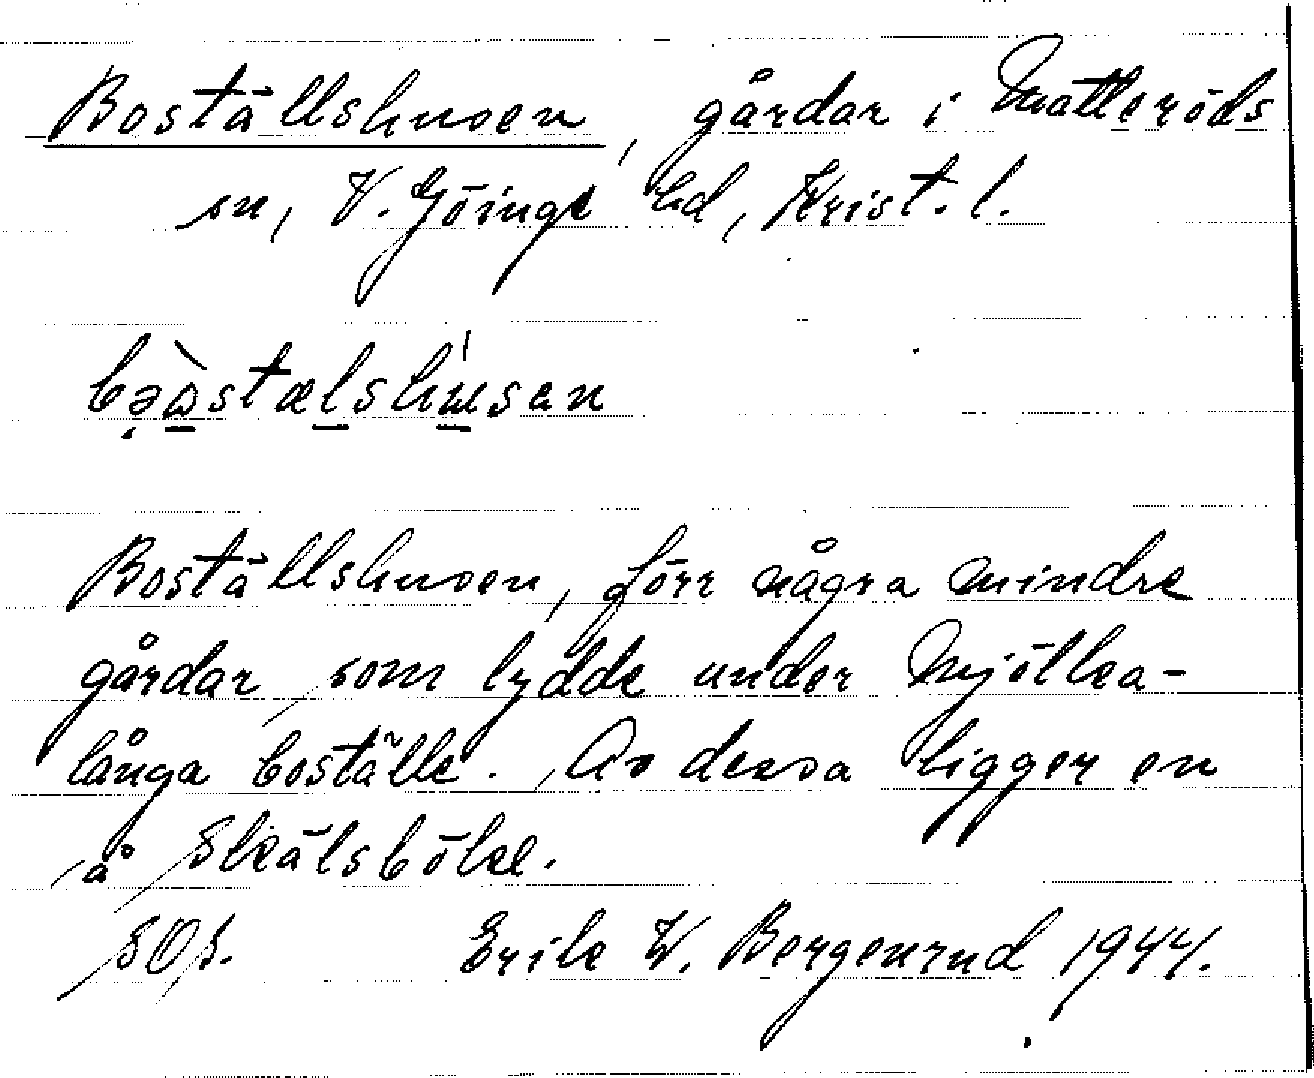 Boställshusen, gårdar i Matteröds
sn, V. Göinge hd, Krist. l.
Boställshusen, förr några mindre
gårdar, som lydde under Mjölka-
långa boställe. Av dessa ligger en
å Skälsböke.
SOf. Erik W. Bergenrud 1944.